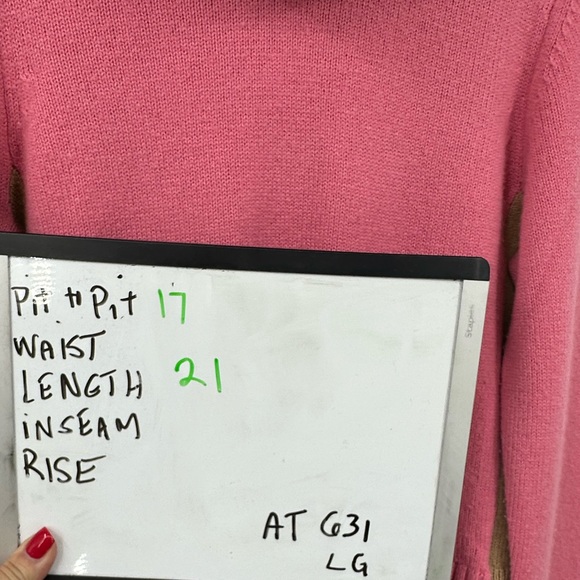 Pit to Pit 17
WAIST
LENGTH 21
INSEAM
RISE
AT G31
LG